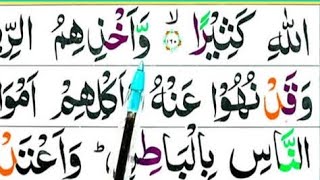 اللهِ كَثِيْرًا ۙ﴿۱۶۰﴾ وَّاَخْذِهِمُ الرِّ
وَقَدْ نُهُوْا عَنْهُ وَاَكْلِهِمْ اَمْوَا
النَّاسِ بِالْبَاطِلِ ؕ وَاَعْتَدْ